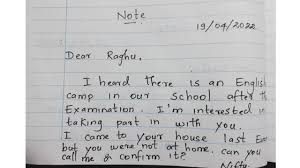 Note
19/04/2022
Dear Raghu,
I heard there is an English
camp in our school after th
Examination. I'm interested i
taking part in with you.
I came to your house last Eve
but you were not at home. can you
call me & confirm it?
Nifta